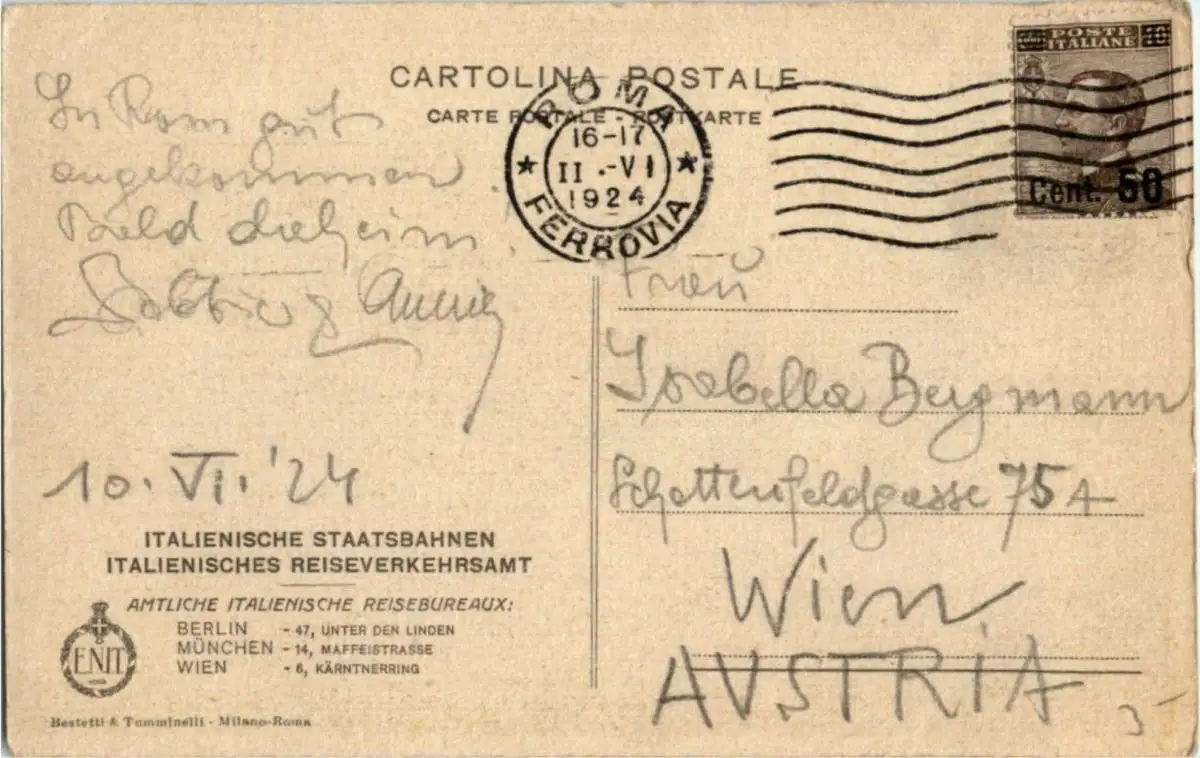 CARTOLINA POSTALE
CARTE POSTALE - POSTKARTE
POSTE
ITALIANE
Cent. 50
ROMA
16-17
II.-VI
1924
FERROVIA
In Rom gut
angekommen.
Bald daheim.
10. VI. '24
ITALIENISCHE STAATSBAHNEN
ITALIENISCHES REISEVERKEHRSAMT
AMTLICHE ITALIENISCHE REISEBUREAUX:
BERLIN - 47, UNTER DEN LINDEN
MÜNCHEN - 14, MAFFEISTRASSE
WIEN - 6, KÄRNTNERRING
ENIT
Bestetti & Tumminelli - Milano-Roma
Frau
Isabella Bergmann
Schottenfeldgasse 75A
Wien
AUSTRIA